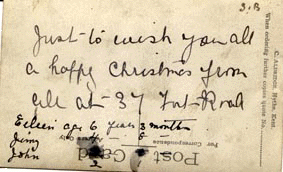 3.B
Just to wish you all
a happy Christmas from
all at 37 Fort Road
Eileen age 6 years 3 months
Jimmy
John
Post Card
For Correspondence
C. Hythe, Kent.
When ordering further copies quote No.